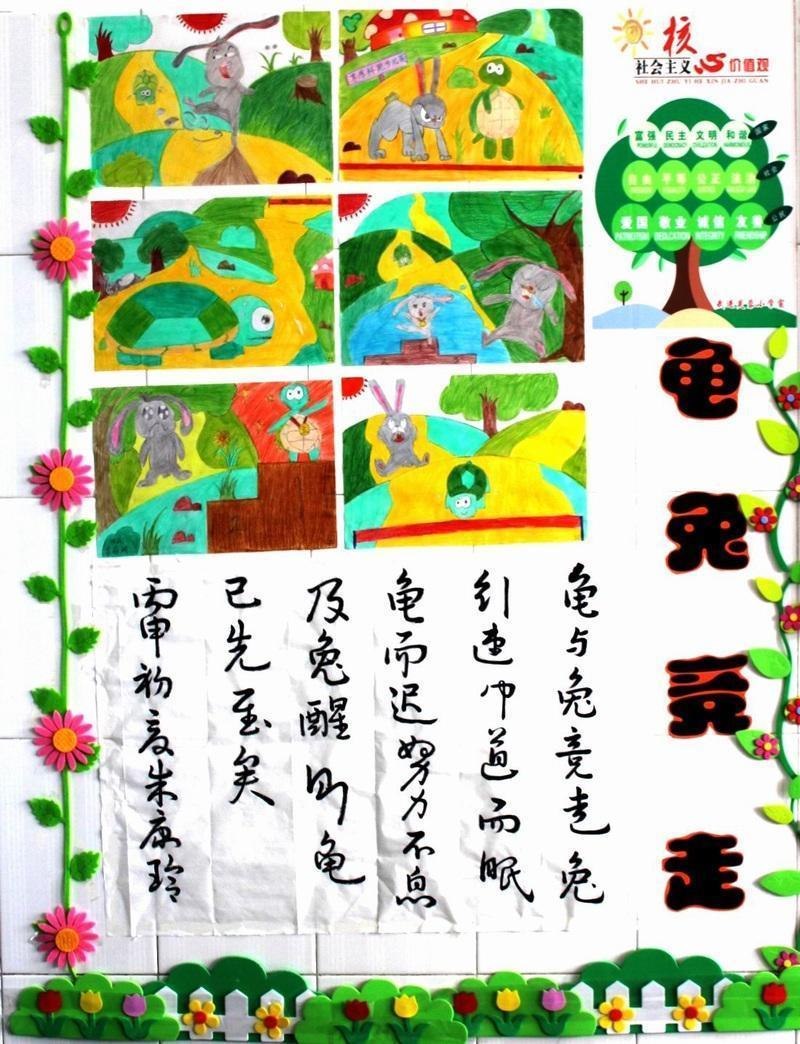 社会主义核心价值观
SHE HUI ZHU YI HE XIN JIA ZHI GUAN
富强 民主 文明 和谐 国家
POWERFUL DEMOCRACY CIVILIZATION HARMONIOUS
自由 平等 公正 法治 社会
爱国 敬业 诚信 友善 公民
PATRIOTISM DEDICATION INTEGRITY FRIENDSHIP
龟兔竞走
龟与兔竞走兔
行速中道而眠
龟而迟努力不息
及兔醒则龟
已先至矣
丙申初夏朱康玲